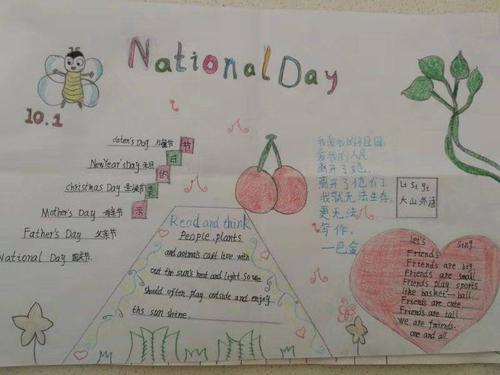 National Day
10.1
Day 儿童节
New Year's Day 元旦
christmas Day 圣诞节
Mother's Day 母亲节
Father's Day 父亲节
National Day 国庆节
节
日
的
我爱我的祖国,
爱我的人民,
离开了她,
离开了他们,
我就无法生存,
更无法
写作。
—巴金
Read and think
People, plants
and animals can't live with
out the sun's heat and light. So we
should often play outside and enjoy
the sun shine.
大山
Let's Sing
Friends
Friends are big
Friends are small
Friends play sports
like basket-ball
Friends are cute
Friends are tall
We are friends
one and all